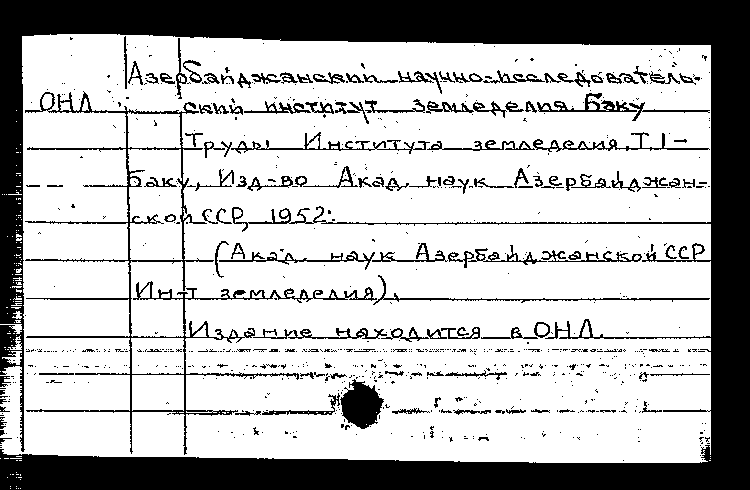 Азербайджанский научно-исследователь-
ОНЛ ский институт земледелия. Баку
Труды Института земледелия. Т. 1-
Баку, Изд-во Акад. наук Азербайджан-
ской ССР, 1952-
(Акад. наук Азербайджанской ССР
Ин-т земледелия).
Издание находится в ОНЛ.